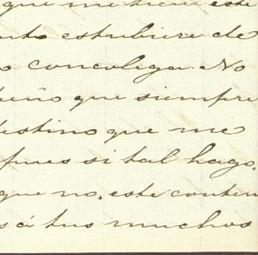 que me tiene este
nto estubiere de
o concolega. No
eño que siempre
destino que me
pues si tal hago,
que no, este conten
s á tus muchos